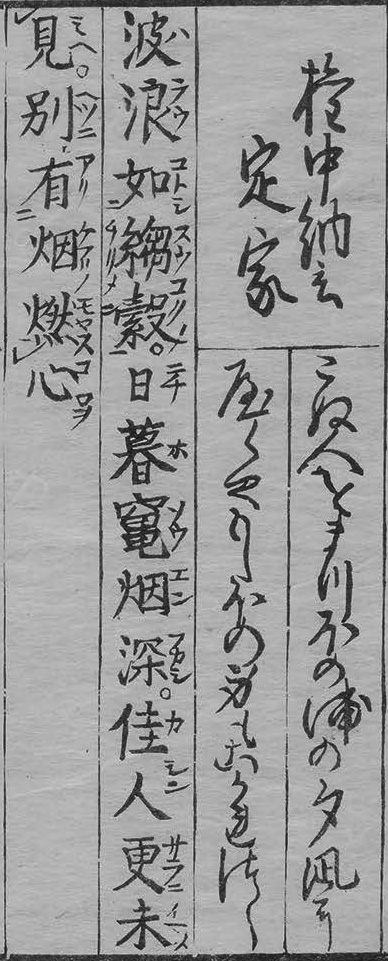 権中納言
定家
こぬ人をまつほの浦の夕凪に
やくやもしほの身もこかれつゝ
波浪如縐縠。日暮竈烟深。佳人更未
見。別有烟燃心